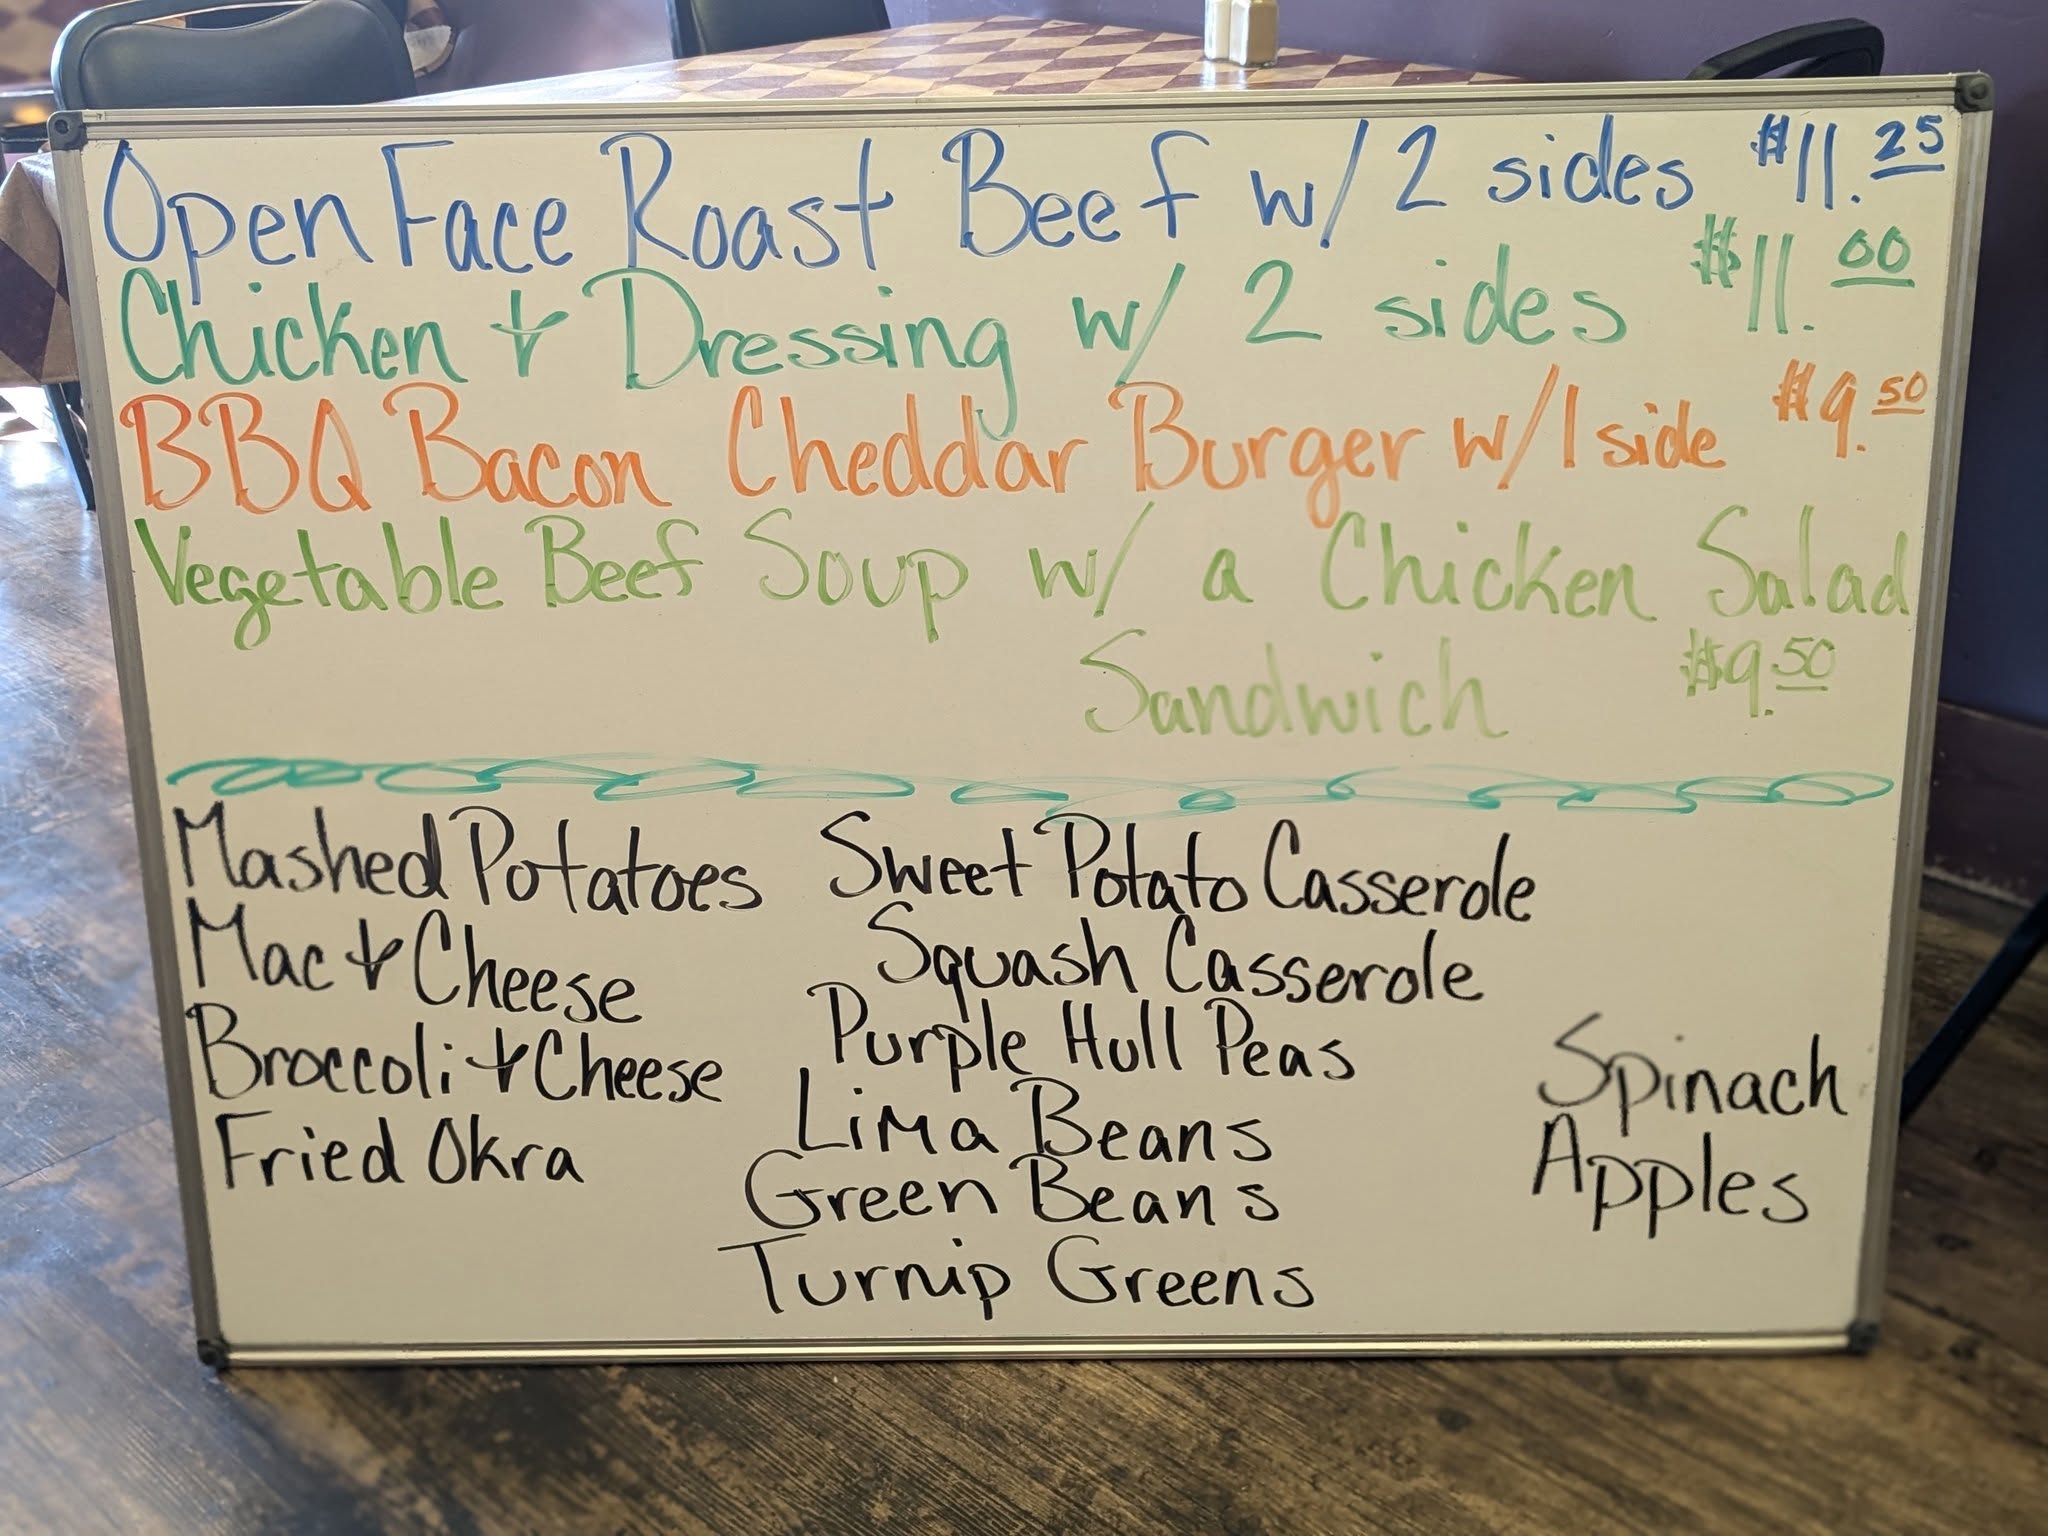 Open Face Roast Beef w/ 2 sides $11.25
Chicken & Dressing w/ 2 sides $11.00
BBQ Bacon Cheddar Burger w/ 1 side $9.50
Vegetable Beef Soup w/ a Chicken Salad
Sandwich $9.50
Mashed Potatoes
Mac & Cheese
Broccoli & Cheese
Fried Okra
Sweet Potato Casserole
Squash Casserole
Purple Hull Peas
Lima Beans
Green Beans
Turnip Greens
Spinach
Apples